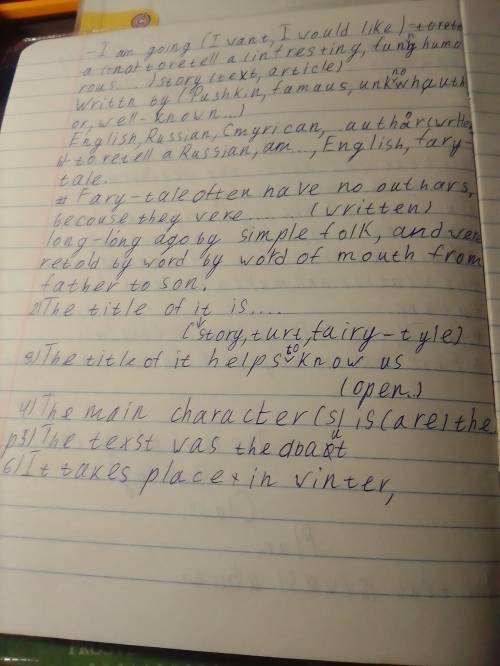 - I am going (I want, I would like) to rete
a (not to retell a (intresting, funny humo
rous.... ) story (text, article)
Writtn by (Pushkin, famaus, unknowh auth
or, well-known...)
English, Russian, Cmyrican, ... author (writer
# to retell a Russian, am..., English, fary-
tale.
# Fary-tale often have no outhars,
becouse they vere....... (written)
long-long ago by simple folk, and vere
retold by word by word of mouth from
father to son.
2) The title of it is....
(story, turt, fairy-tyle)
3) The title of it helps to know us
(open.)
4) The main character (s) is (are) the
p5) The texst vas the about
6) It takes place in vinter,